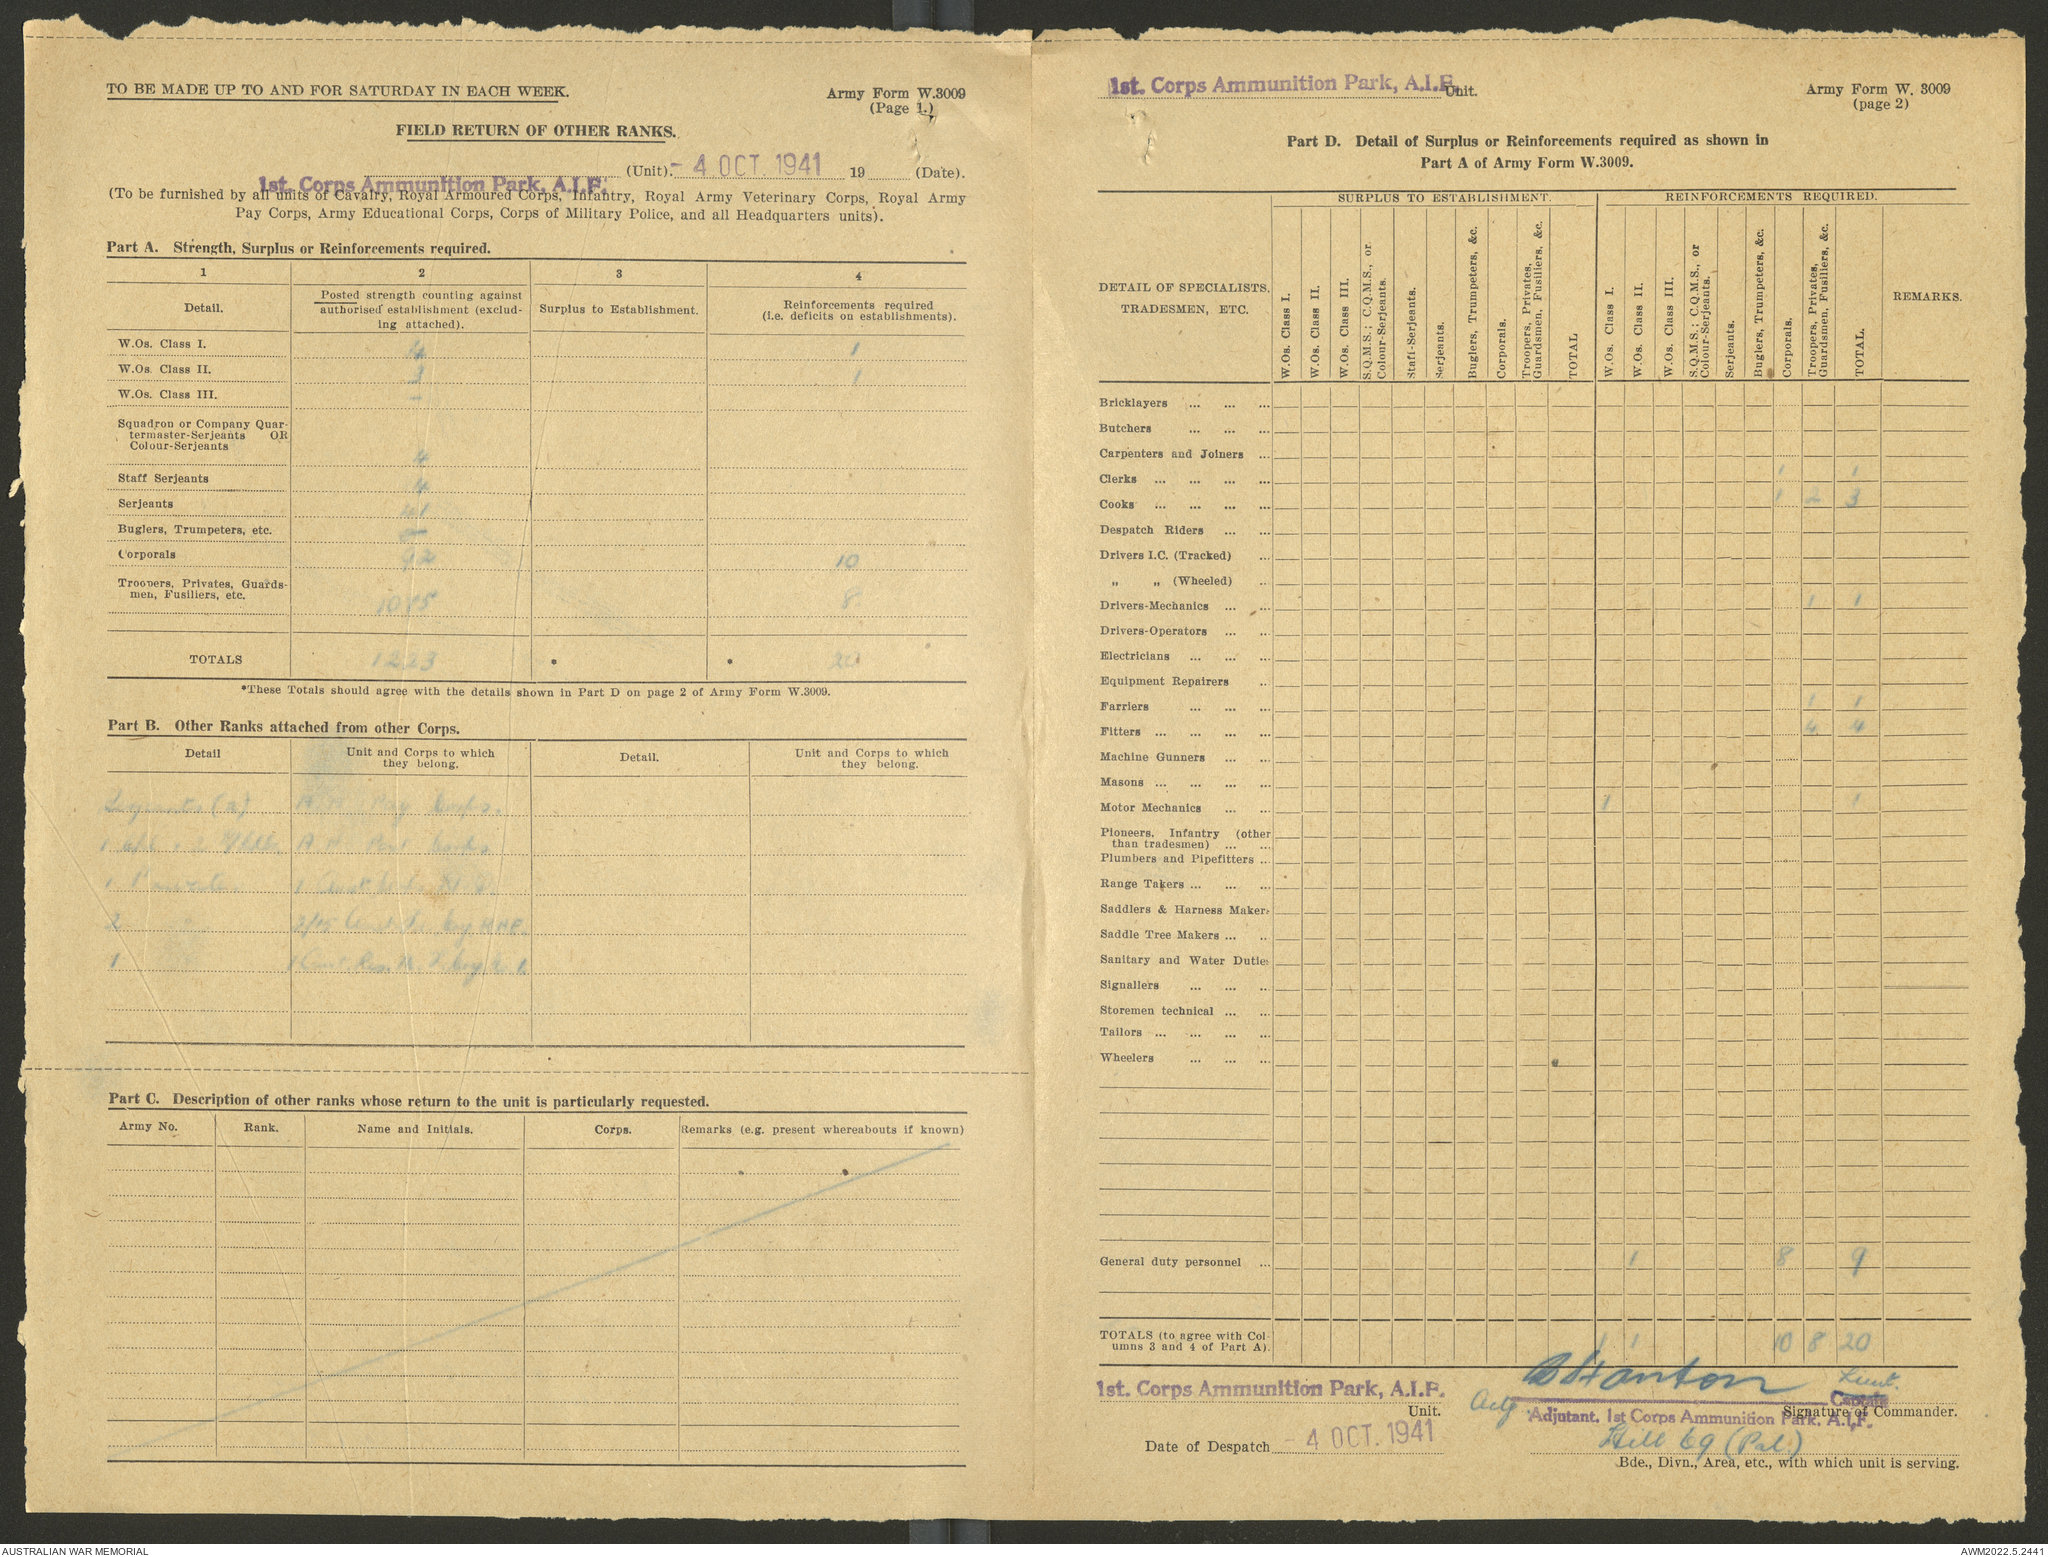 TO BE MADE UP TO AND FOR SATURDAY IN EACH WEEK.
Army Form W.3009
(Page 1.)
FIELD RETURN OF OTHER RANKS.
1st. Corps Ammunition Park, A.I.F. (Unit). - 4 OCT. 1941 19 (Date).
(To be furnished by all units of Cavalry, Royal Armoured Corps, Infantry, Royal Army Veterinary Corps, Royal Army
Pay Corps, Army Educational Corps, Corps of Military Police, and all Headquarters units).
Part A. Strength, Surplus or Reinforcements required.
1 2 3 4
Detail.
Posted strength counting against
authorised establishment (exclud-
ing attached).
Surplus to Establishment.
Reinforcements required
(i.e. deficits on establishments).
W.Os. Class I. 4 1
W.Os. Class II. 1
W.Os. Class III. -
Squadron or Company Quar-
termaster-Serjeants OR
Colour-Serjeants 4
Staff Serjeants 4
Serjeants 41
Buglers, Trumpeters, etc. -
Corporals 92 10
Troopers, Privates, Guards-
men, Fusiliers, etc. 1075 8
TOTALS 1223 * * 20
*These Totals should agree with the details shown in Part D on page 2 of Army Form W.3009.
Part B. Other Ranks attached from other Corps.
Detail
Unit and Corps to which
they belong.
Detail.
Unit and Corps to which
they belong.
Pay Corps.
1
1
2 2/15
1
Part C. Description of other ranks whose return to the unit is particularly requested.
Army No. Rank. Name and Initials. Corps. Remarks (e.g. present whereabouts if known)
1st. Corps Ammunition Park, A.I.F. Unit.
Army Form W. 3009
(page 2)
Part D. Detail of Surplus or Reinforcements required as shown in
Part A of Army Form W.3009.
DETAIL OF SPECIALISTS,
TRADESMEN, ETC.
SURPLUS TO ESTABLISHMENT.
W.Os. Class I.
W.Os. Class II.
W.Os. Class III.
S.Q.M.S.; C.Q.M.S., or
Colour-Serjeants.
Staff-Serjeants.
Serjeants.
Buglers, Trumpeters, &c.
Corporals.
Troopers, Privates,
Guardsmen, Fusiliers, &c.
TOTAL
REINFORCEMENTS REQUIRED.
W.Os. Class I.
W.Os. Class II.
W.Os. Class III.
S.Q.M.S.; C.Q.M.S., or
Colour-Serjeants.
Serjeants.
Buglers, Trumpeters, &c.
Corporals.
Troopers, Privates,
Guardsmen, Fusiliers, &c.
TOTAL.
REMARKS.
Bricklayers ... ... ...
Butchers ... ... ...
Carpenters and Joiners ...
Clerks ... ... ... ... 1 1
Cooks ... ... ... ... 1 2 3
Despatch Riders ... ...
Drivers I.C. (Tracked) ...
„ „ (Wheeled) ..
Drivers-Mechanics ... ... 1 1
Drivers-Operators ... ..
Electricians ... ... ..
Equipment Repairers ..
Farriers ... ... ... 1 1
Fitters ... ... ... ... 4 4
Machine Gunners ... ...
Masons ... ... ... ...
Motor Mechanics ... ... 1 1
Pioneers, Infantry (other
than tradesmen) ... ...
Plumbers and Pipefitters ...
Range Takers ... ... ...
Saddlers & Harness Makers
Saddle Tree Makers ... ..
Sanitary and Water Duties
Signallers ... ... ..
Storemen technical ... ..
Tailors ... ... ... ...
Wheelers ... ... ...
General duty personnel ... 1 8 9
TOTALS (to agree with Col-
umns 3 and 4 of Part A). 1 1 10 8 20
1st. Corps Ammunition Park, A.I.F.
Unit.
B Stanton Lieut.
Captain
Actg Adjutant, 1st Corps Ammunition Park, A.I.F.
Signature of Commander.
Date of Despatch - 4 OCT. 1941
Hill 69 (Pal.)
Bde., Divn., Area, etc., with which unit is serving.
AUSTRALIAN WAR MEMORIAL
AWM2022.5.2441